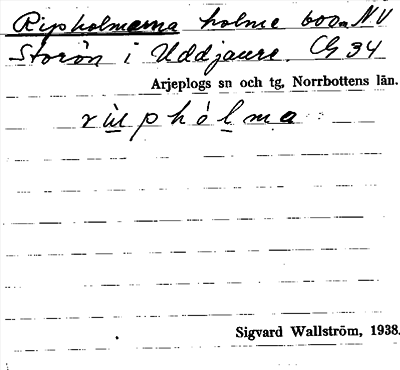 Ripholmarna holme 600m NV
Storön i Uddjaure. CG 34
Arjeplogs sn och tg, Norrbottens län.
ri̇̀pholma
Sigvard Wallström, 1938.